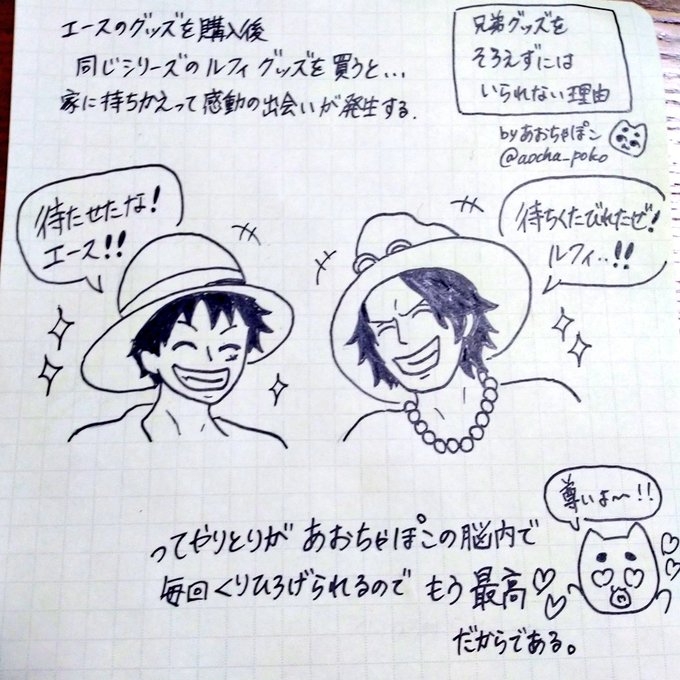 エースのグッズを購入後
同じシリーズのルフィグッズを買うと...
家に持ちかえって感動の出会いが発生する.
兄弟グッズを
そろえずには
いられない理由
byあおちゃぽこ
@aocha_poko
待たせたな!
エース!!
待ちくたびれたぜ!
ルフィ..!!
尊いよ〜!!
ってやりとりがあおちゃぽこの脳内で
毎回くりひろげられるのでもう最高
だからである。